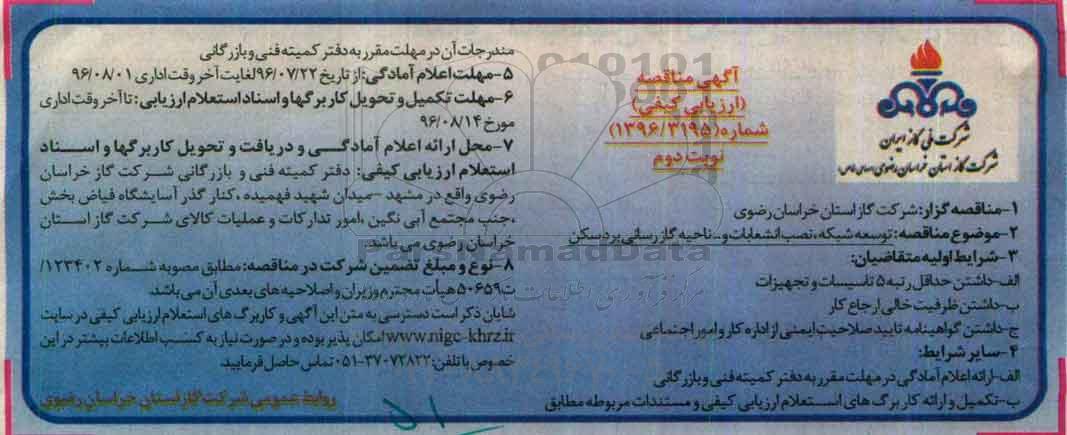 شرکت ملی گاز ایران
شرکت گاز استان خراسان رضوی (سهامی خاص)
آگهی مناقصه
(ارزیابی کیفی)
شماره(۱۳۹۶/۳۱۹۵)
نوبت دوم
۱-مناقصه گزار: شرکت گاز استان خراسان رضوی
۲-موضوع مناقصه: توسعه شبکه، نصب انشعابات و... ناحیه گازرسانی بردسکن
۳-شرایط اولیه متقاضیان:
الف-داشتن حداقل رتبه ۵ تاسیسات و تجهیزات
ب-داشتن ظرفیت خالی ارجاع کار
ج-داشتن گواهینامه تایید صلاحیت ایمنی از اداره کار و امور اجتماعی
۴-سایر شرایط:
الف-ارائه اعلام آمادگی در مهلت مقرر به دفتر کمیته فنی و بازرگانی
ب-تکمیل و ارائه کاربرگ های استعلام ارزیابی کیفی و مستندات مربوطه مطابق
مندرجات آن در مهلت مقرر به دفتر کمیته فنی و بازرگانی
۵-مهلت اعلام آمادگی: از تاریخ ۹۶/۰۷/۲۲ لغایت آخر وقت اداری ۹۶/۰۸/۰۱
۶-مهلت تکمیل و تحویل کاربرگها و اسناد استعلام ارزیابی: تا آخر وقت اداری
مورخ ۹۶/۰۸/۱۴
۷-محل ارائه اعلام آمادگی و دریافت و تحویل کاربرگها و اسناد
استعلام ارزیابی کیفی: دفتر کمیته فنی و بازرگانی شرکت گاز خراسان
رضوی واقع در مشهد -میدان شهید فهمیده، کنار گذر آسایشگاه فیاض بخش
،جنب مجتمع آبی نگین، امور تدارکات و عملیات کالای شرکت گاز استان
خراسان رضوی می باشد.
۸-نوع و مبلغ تضمین شرکت در مناقصه: مطابق مصوبه شماره ۱۲۳۴۰۲/
ت۵۰۶۵۹ هیأت محترم وزیران و اصلاحیه های بعدی آن می باشد.
شایان ذکر است دسترسی به متن این آگهی و کاربرگ های استعلام ارزیابی کیفی در سایت
www.nigc-khrz.ir امکان پذیر بوده و در صورت نیاز به کسب اطلاعات بیشتر در این
خصوص با تلفن: ۳۷۰۷۲۸۲۲-۰۵۱ تماس حاصل فرمایید.
روابط عمومی شرکت گاز استان خراسان رضوی
ParsNamadData